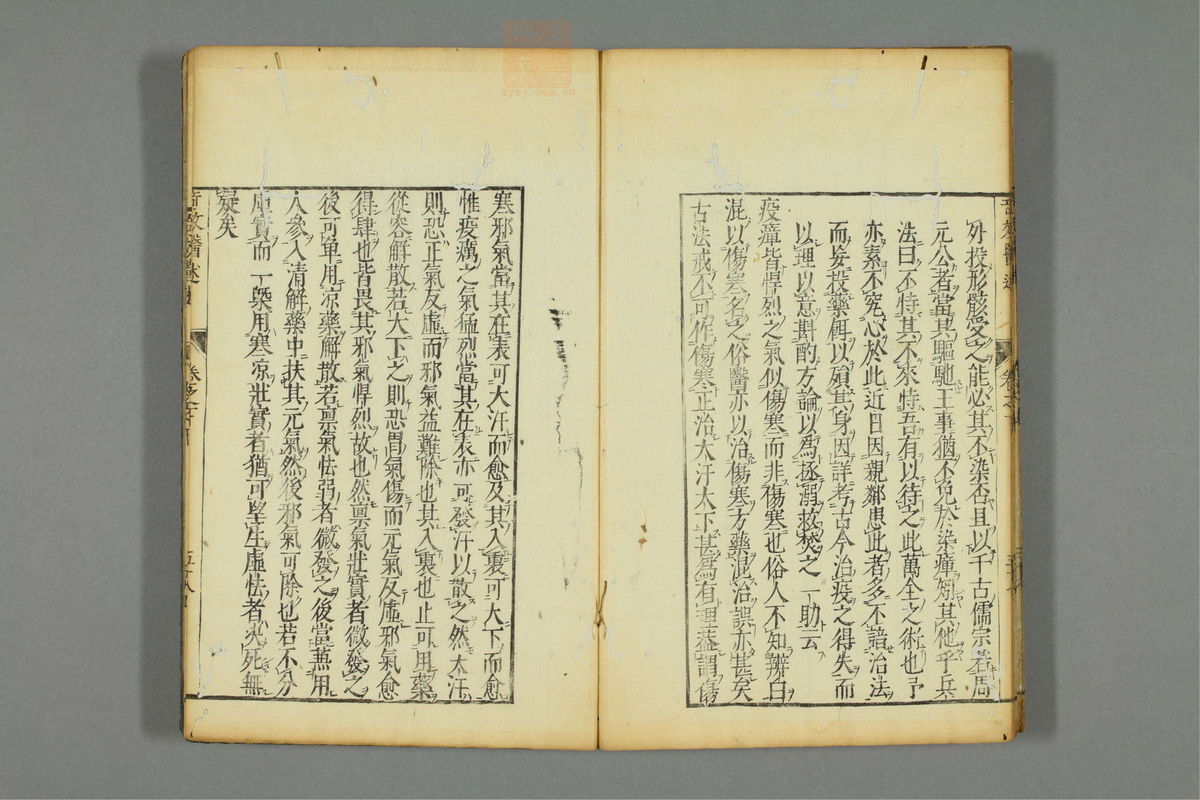 外投形骸受之能必其不染否且以千古儒宗若周
元公者當其驅馳王事猶不免於染瘴矧其他乎兵
法曰不恃其不來恃吾有以待之此萬全之術也予
亦素不究心於此近日因親鄰患此者多不諳治法
而妄投藥餌以殞其身因詳考古今治疫之得失而
以理以意斟酌方論以爲拯溺救焚之一助云
疫瘴皆悍烈之氣似傷寒而非傷寒也俗人不知辨白
混以傷寒名之俗醫亦以治傷寒方藥混治誤亦甚矣
古法戒不可作傷寒正治大汗大下甚爲有理葢謂傷
寒邪氣當其在表可大汗而愈及其入裏可大下而愈
惟疫癘之氣猛烈當其在表亦可發汗以散之然大汗
則恐正氣反虛而邪氣益難除也其入裏也止可用藥
從容解散若大下之則恐胃氣傷而元氣反虛邪氣愈
得肆也皆畏其邪氣悍烈故也然禀氣壯實者微發之
後可單用凉藥解散若禀氣怯弱者微發之後當蒸用
人參入清解藥中扶其元氣然後邪氣可除也若不分
虛實而一槩用寒凉壯實者猶可望生虛怯者夾死無
疑矣
卷之
五十八
zysj.com.cn